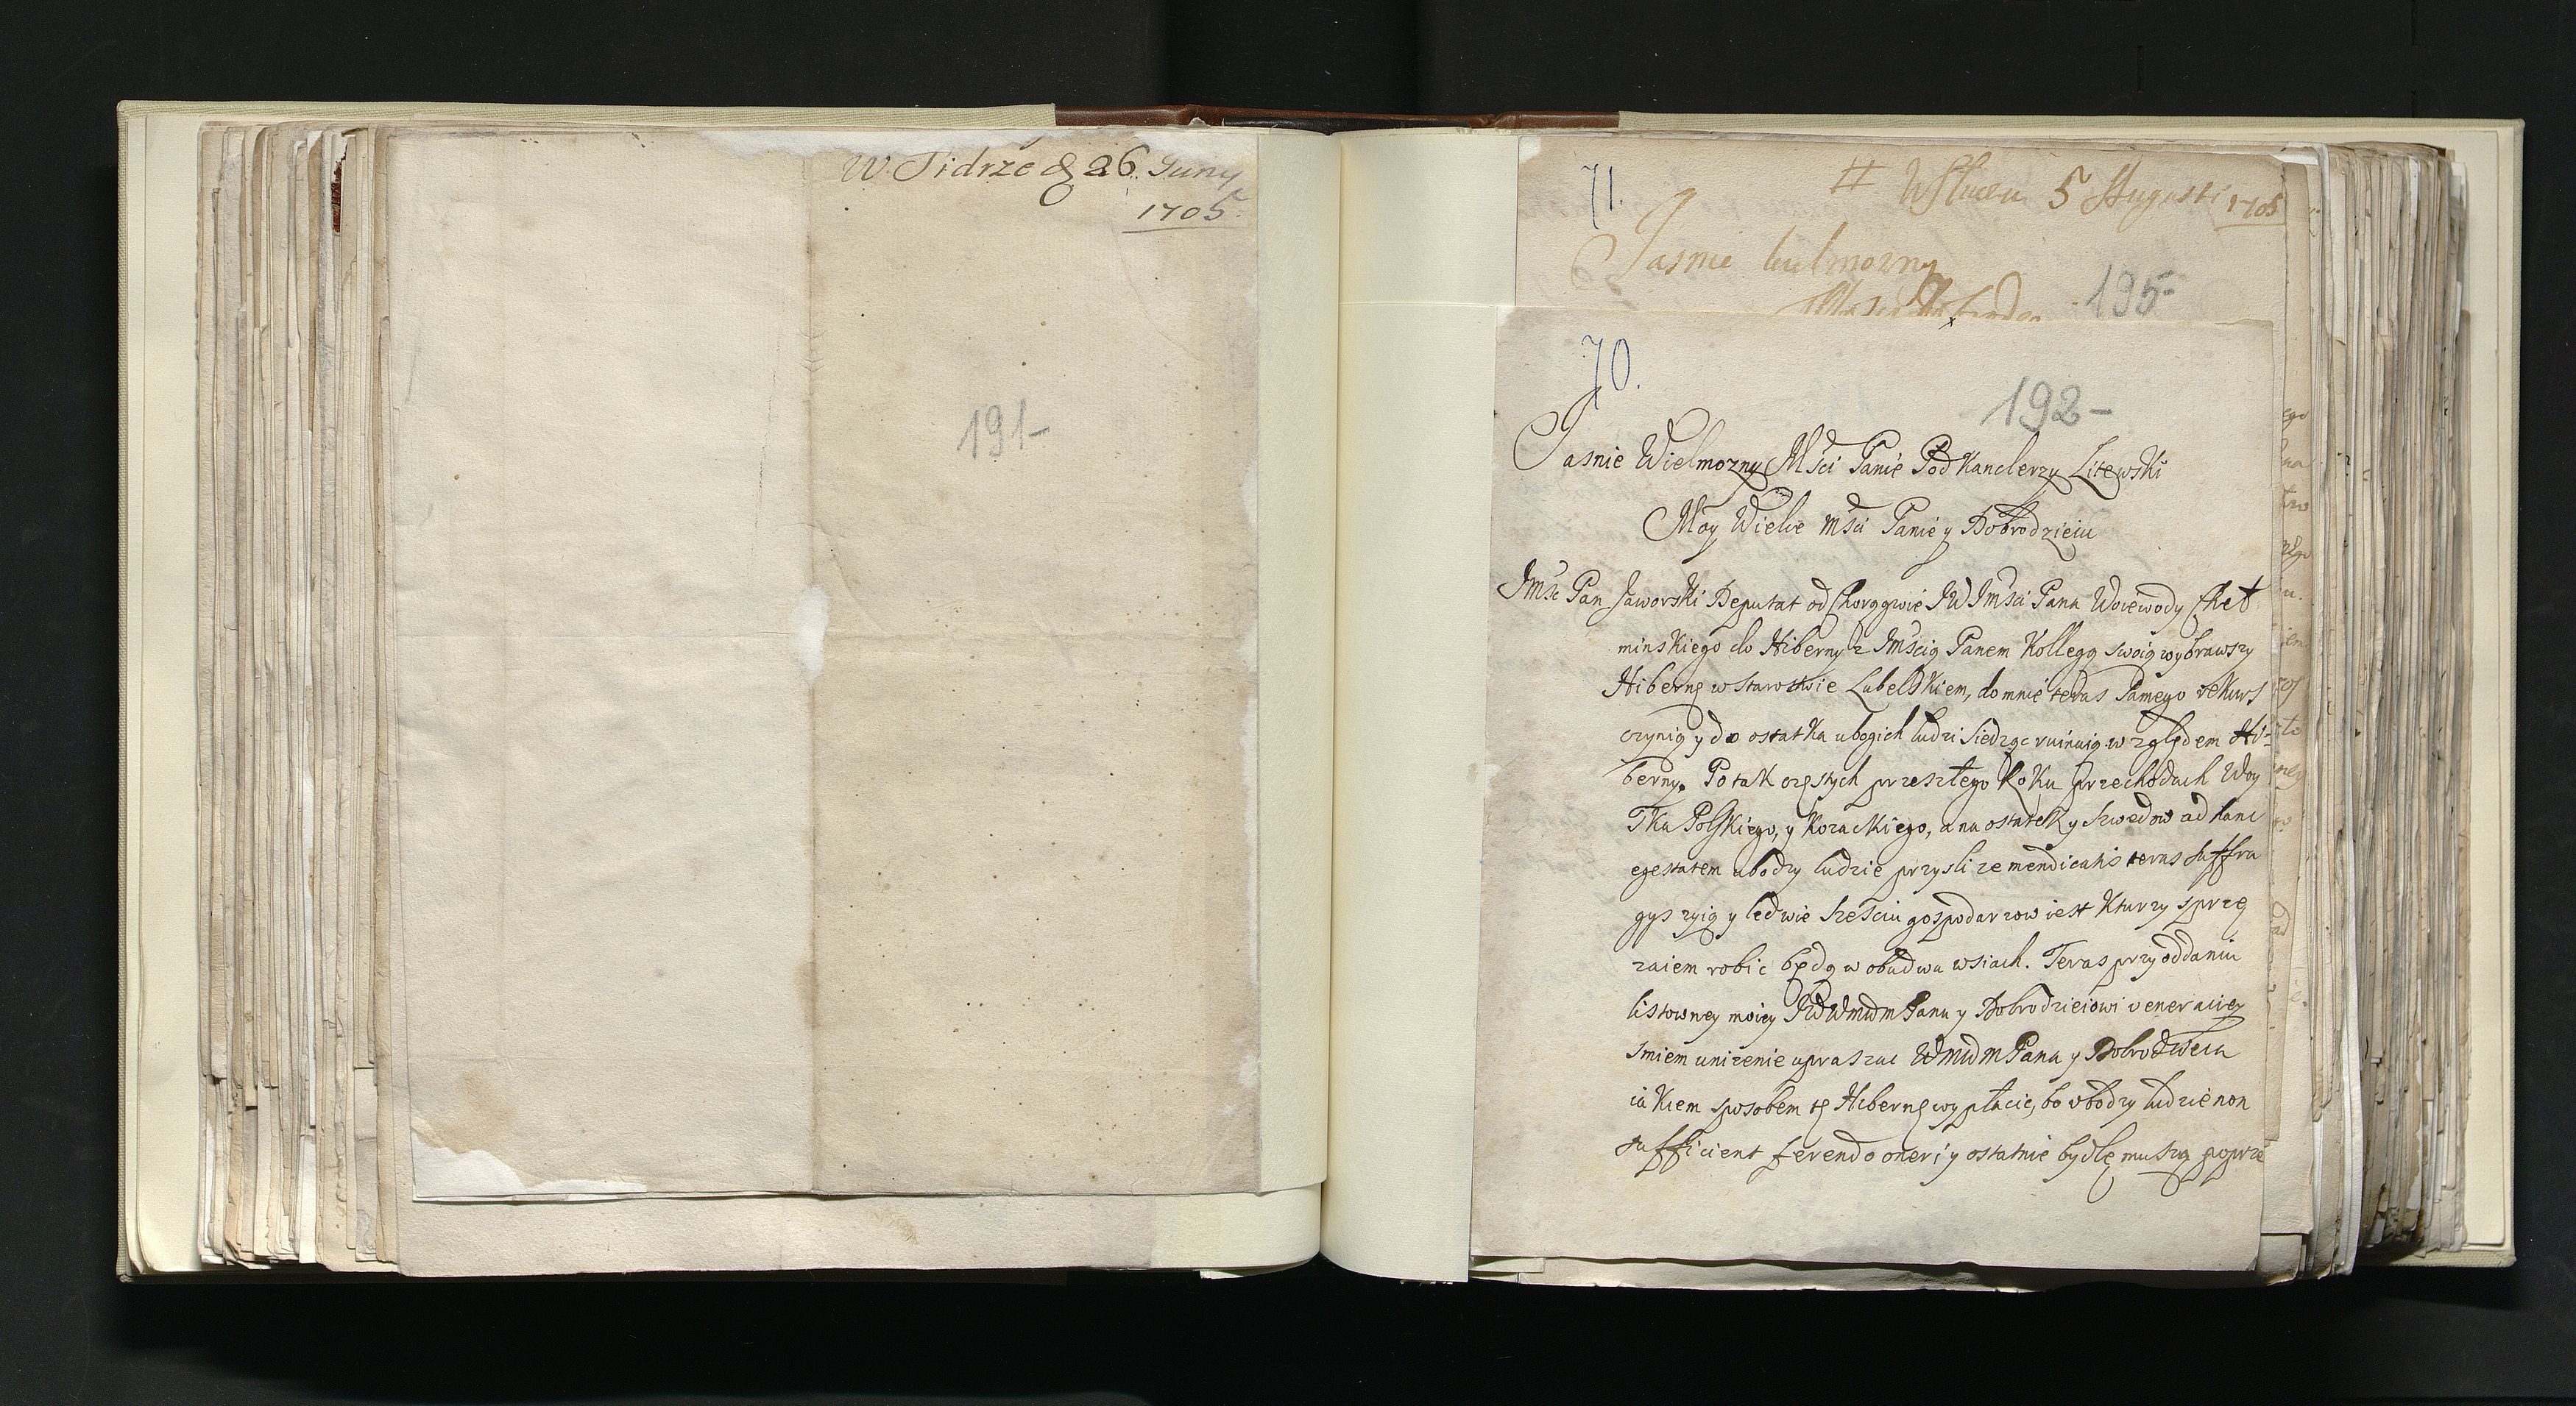 W Tidrze d 26 Juny
1705.
191-
71.
# W Słucku 5 Augusti 1705
Jasnie Wielmozny
195-
70.
192-
Jasnie Wielmozny Msci Panie Pod Kanclerzy Litewski
Moy Wielce Msci Panie y Dobrodzieiu
Jmsc Pan Jaworski Deputat od Chorągwie JW Jmsci Pana Woiewody Cheł
minskiego do Hiberny z Jmscią Panem Kollegą swoią wybrawszy
Hibernę w Starostwie Lubelskiem, do mnie teras samego rekurs
czynią y do ostatka ubogich ludzi siedząc ruinuią względem Hi-
berny. Po tak częstych przeszłego Roku przechodach Woy
ska Polskiego, y Kozackiego, a na ostatek y Szwedow ad hanc
egestatem ubodzy ludzie przysli ze mendicatis teras suffra
gys zyią y ledwie szesciu gospodarzow iest kturzy sprzę
zaiem robic będą w obudwu wsiach. Teras przy oddaniu
listowney moiey JWWMWM Panu y Dobrodzieiowi veneraciey
smiem unizenie upraszac WMWM Pana y Dobrodzieia
iakiem sposobem tę Hibernę wypłacic, bo ubodzy ludzie non
sufficient ferendo oneri y ostatnie bydlę muszą poprze